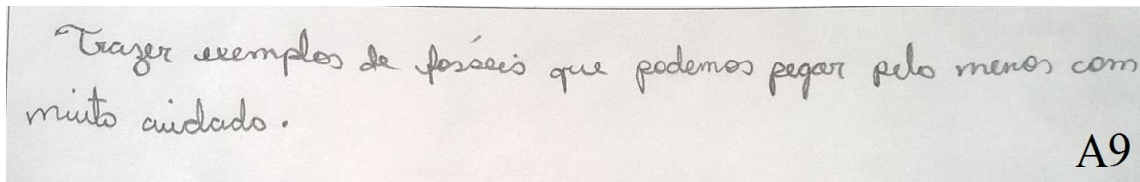 Trazer exemplos de fosséis que podemos pegar pelo menos com
muito cuidado.
A9